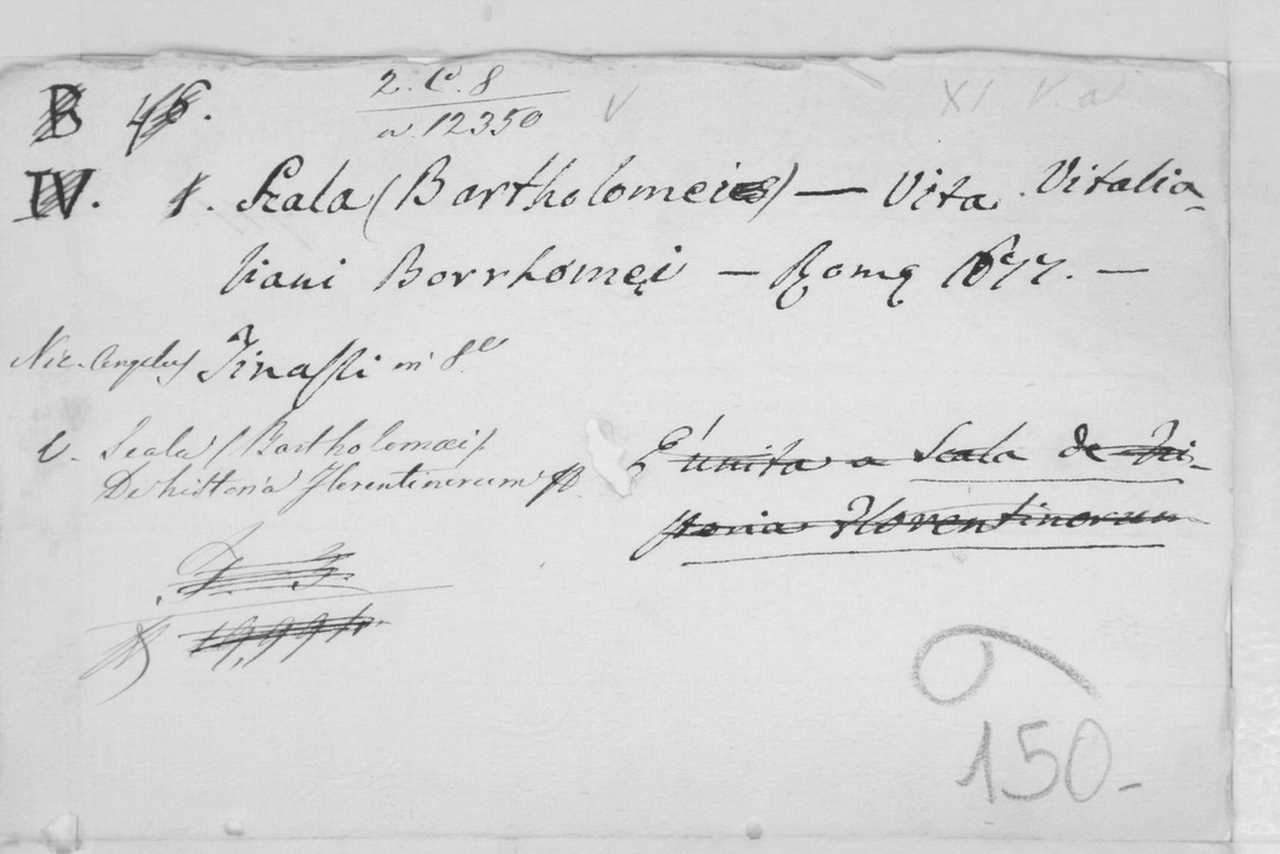 B 46. 2. C. 8 V XI. V. a
a. 12350
IV. 1. Scala (Bartholomei) — Vita Vitalia-
liani Borrhomęi — Romę 1677. —
Nic. Angelus Tinassi in 8.º
V. Scala (Bartholomæi)
De historia Florentinorum
E' unita a Scala de Hi-
storia Florentinorum
150-